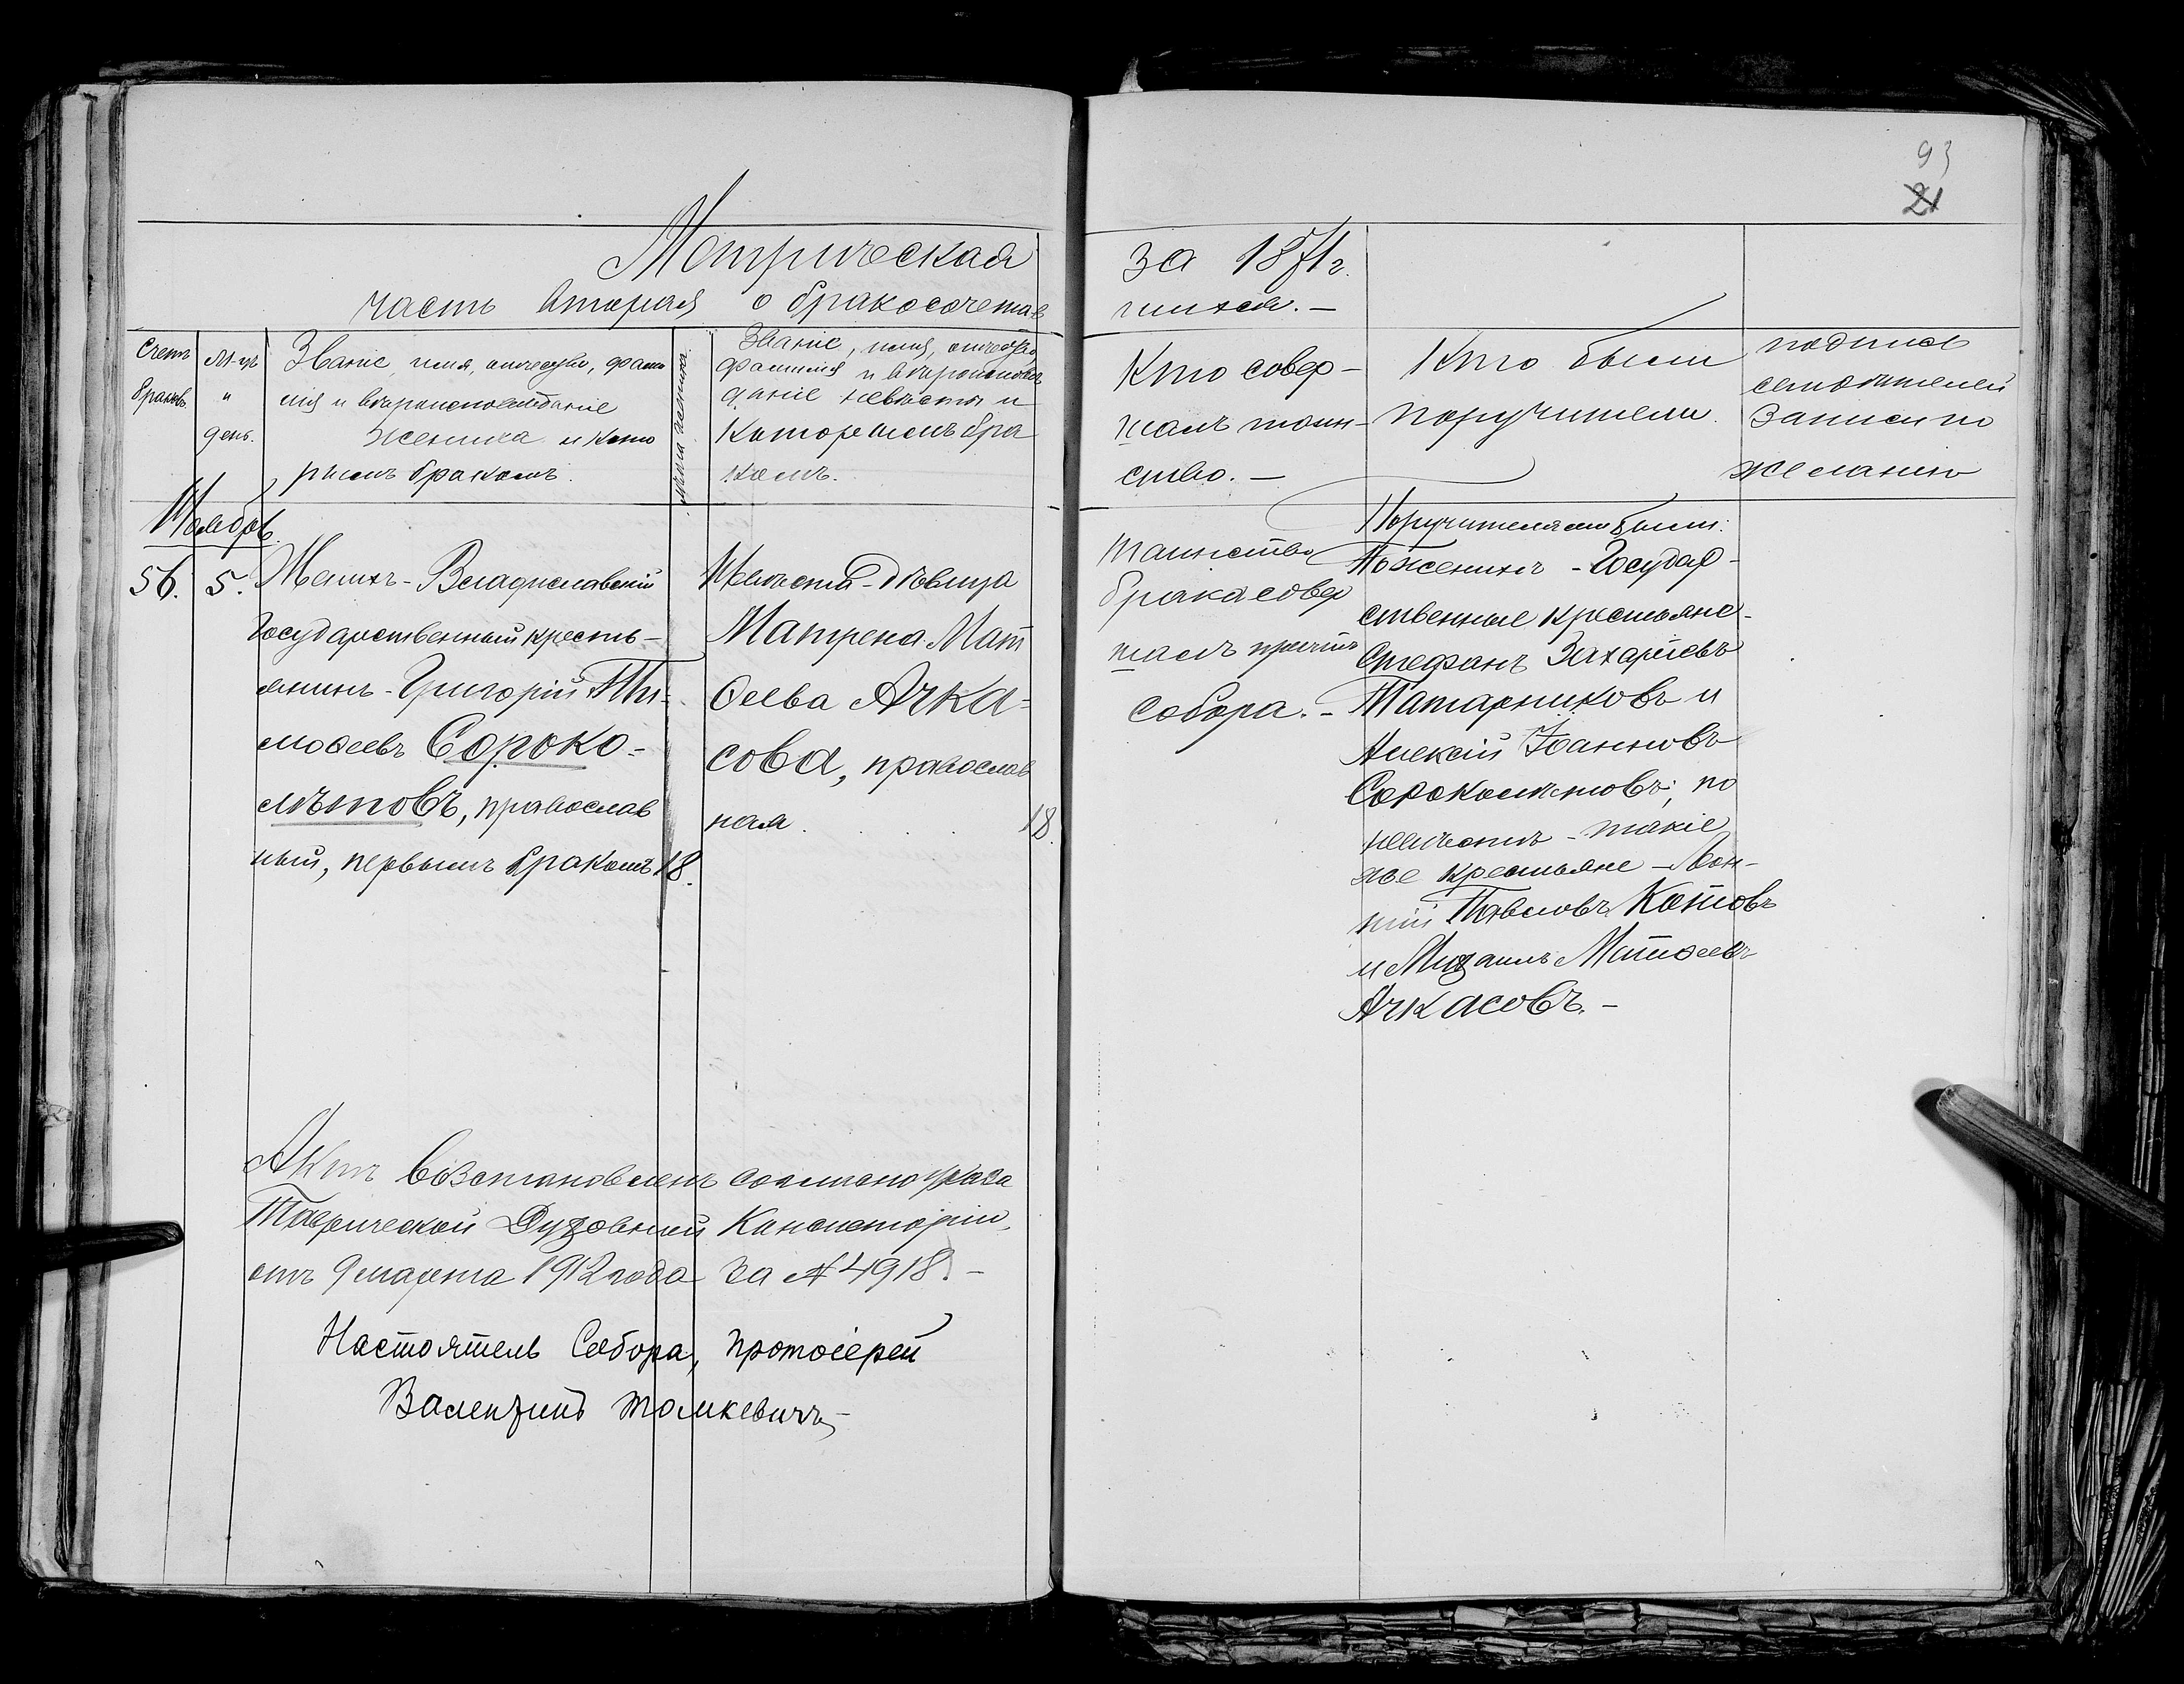 93
21
Метрическая за 1871 г.
часть вторая о бракосочетав
шихся. —
Счетъ
браковъ.
М-цъ
и
день.
Званіе, имя, отчество, фами
лія и вѣроисповѣданіе
жениха и кото
рымъ бракомъ.
Лѣта жениха.
Званіе, имя, отчество,
фамилія и вѣроисповѣ
даніе невѣсты и
которымъ бра
комъ.
Кто совер-
шалъ таин-
ство. —
Кто были
поручители.
подпись
свидѣтелей
записи по
желанію
Ноябрь.
56. 5. Женихъ - Владиславскій
Государственный кресть-
янинъ - Григорій Ти-
моѳеевъ Сороко-
лѣтовъ, православ
ный, первымъ бракомъ 18.
Невѣста - дѣвица
Матрена Мат
ѳеева Ачка-
сова, православ
ная. 18.
Таинство
брака совер
шалъ причтъ
собора. —
Поручителями были:
По женихѣ - Государ-
ственные крестьяне -
Стефанъ Захаріевъ
Татарниковъ и
Алексій Іоанновъ
Сороколѣтовъ; по
невѣстѣ - такіе
же крестьяне - Лон-
гій Павловъ Котовъ
и Михаилъ Матѳеевъ
Ачкасовъ. —
Актъ возстановленъ согласно указа
Таврической Духовной Консисторіи,
отъ 9 марта 1912 года за № 4918. —
Настоятель Собора, протоіерей
Валентинъ Томкевичъ